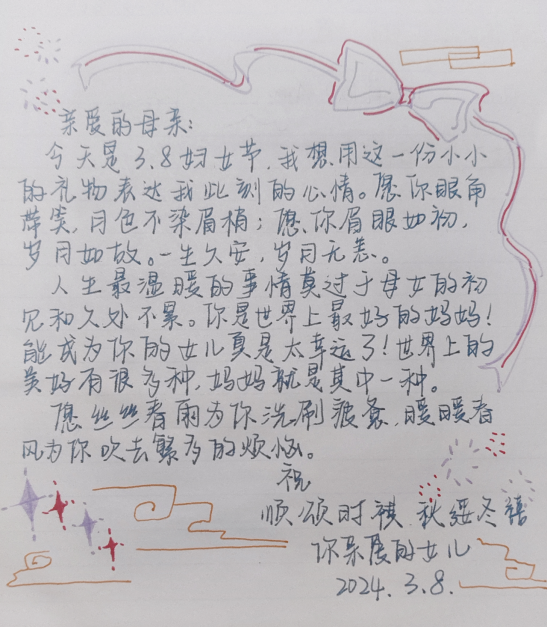 亲爱的母亲：
今天是3.8妇女节，我想用这一份小小
的礼物表达我此刻的心情。愿你眼角
带笑，月色不染眉梢；愿你眉眼如初，
岁月如故。一生久安，岁月无恙。
人生最温暖的事情莫过于母女的初
见和久处不累。你是世界上最好的妈妈！
能成为你的女儿真是太幸运了！世界上的
美好有很多种，妈妈就是其中一种。
愿丝丝春雨为你洗刷疲惫，暖暖春
风为你吹去繁多的烦恼。
祝
顺颂时祺 秋绥冬禧
你亲爱的女儿
2024.3.8.